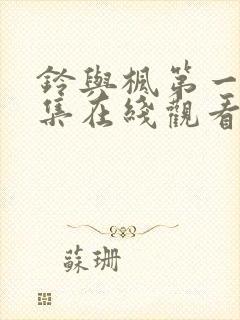 鈴與楓第一
集在綫觀看
蘇珊